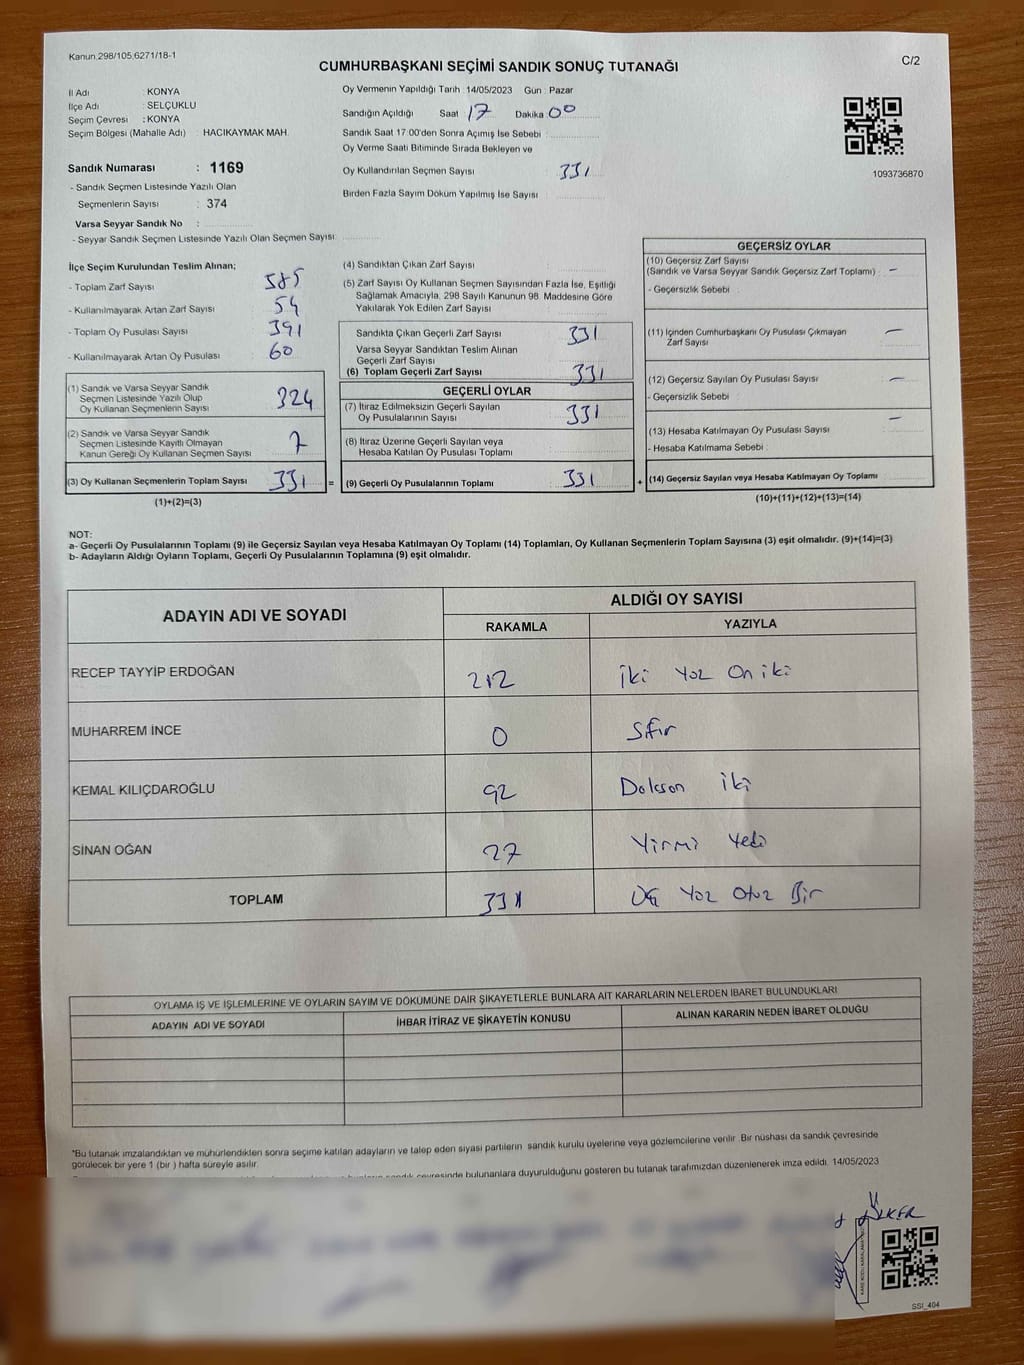 Kanun.298/105,6271/18-1
C/2
CUMHURBAŞKANI SEÇİMİ SANDIK SONUÇ TUTANAĞI
İl Adı : KONYA
İlçe Adı : SELÇUKLU
Seçim Çevresi : KONYA
Seçim Bölgesi (Mahalle Adı) : HACIKAYMAK MAH.
Sandık Numarası : 1169
- Sandık Seçmen Listesinde Yazılı Olan
Seçmenlerin Sayısı : 374
Varsa Seyyar Sandık No :
- Seyyar Sandık Seçmen Listesinde Yazılı Olan Seçmen Sayısı:
Oy Vermenin Yapıldığı Tarih : 14/05/2023 Gün : Pazar
Sandığın Açıldığı Saat 17 Dakika 00
Sandık Saat 17:00'den Sonra Açımış İse Sebebi :
Oy Verme Saati Bitiminde Sırada Bekleyen ve
Oy Kullandırılan Seçmen Sayısı : 331
Birden Fazla Sayım Döküm Yapılmış İse Sayısı :
1093736870
İlçe Seçim Kurulundan Teslim Alınan;
- Toplam Zarf Sayısı 585
- Kullanılmayarak Artan Zarf Sayısı 54
- Toplam Oy Pusulası Sayısı 391
- Kullanılmayarak Artan Oy Pusulası 60
(1) Sandık ve Varsa Seyyar Sandık
Seçmen Listesinde Yazılı Olup
Oy Kullanan Seçmenlerin Sayısı 324
(2) Sandık ve Varsa Seyyar Sandık
Seçmen Listesinde Kayıtlı Olmayan
Kanun Gereği Oy Kullanan Seçmen Sayısı 7
(3) Oy Kullanan Seçmenlerin Toplam Sayısı 331 =
(1)+(2)=(3)
(4) Sandıktan Çıkan Zarf Sayısı
(5) Zarf Sayısı Oy Kullanan Seçmen Sayısından Fazla İse, Eşitliği
Sağlamak Amacıyla, 298 Sayılı Kanunun 98. Maddesine Göre
Yakılarak Yok Edilen Zarf Sayısı
Sandıkta Çıkan Geçerli Zarf Sayısı 331
Varsa Seyyar Sandıktan Teslim Alınan
Geçerli Zarf Sayısı
(6) Toplam Geçerli Zarf Sayısı 331
GEÇERLİ OYLAR
(7) İtiraz Edilmeksizin Geçerli Sayılan
Oy Pusulalarının Sayısı 331
(8) İtiraz Üzerine Geçerli Sayılan veya
Hesaba Katılan Oy Pusulası Toplamı
(9) Geçerli Oy Pusulalarının Toplamı 331 +
GEÇERSİZ OYLAR
(10) Geçersiz Zarf Sayısı
(Sandık ve Varsa Seyyar Sandık Geçersiz Zarf Toplamı) : -
- Geçersizlik Sebebi :
(11) İçinden Cumhurbaşkanı Oy Pusulası Çıkmayan -
Zarf Sayısı
(12) Geçersiz Sayılan Oy Pusulası Sayısı -
- Geçersizlik Sebebi :
(13) Hesaba Katılmayan Oy Pusulası Sayısı -
- Hesaba Katılmama Sebebi :
(14) Geçersiz Sayılan veya Hesaba Katılmayan Oy Toplamı
(10)+(11)+(12)+(13)=(14)
NOT:
a- Geçerli Oy Pusulalarının Toplamı (9) ile Geçersiz Sayılan veya Hesaba Katılmayan Oy Toplamı (14) Toplamları, Oy Kullanan Seçmenlerin Toplam Sayısına (3) eşit olmalıdır. (9)+(14)=(3)
b- Adayların Aldığı Oyların Toplamı, Geçerli Oy Pusulalarının Toplamına (9) eşit olmalıdır.
ADAYIN ADI VE SOYADI
ALDIĞI OY SAYISI
RAKAMLA YAZIYLA
RECEP TAYYİP ERDOĞAN 212 iki Yüz On iki
MUHARREM İNCE 0 Sıfır
KEMAL KILIÇDAROĞLU 92 Doksan iki
SİNAN OĞAN 27 Yirmi Yedi
TOPLAM 331 Üç Yüz Otuz Bir
OYLAMA İŞ VE İŞLEMLERİNE VE OYLARIN SAYIM VE DÖKÜMÜNE DAİR ŞİKAYETLERLE BUNLARA AİT KARARLARIN NELERDEN İBARET BULUNDUKLARI
ADAYIN ADI VE SOYADI İHBAR İTİRAZ VE ŞİKAYETİN KONUSU ALINAN KARARIN NEDEN İBARET OLDUĞU
*Bu tutanak imzalandıktan ve mühürlendikten sonra seçime katılan adayların ve talep eden siyasi partilerin sandık kurulu üyelerine veya gözlemcilerine verilir. Bir nüshası da sandık çevresinde
görülecek bir yere 1 (bir ) hafta süreyle asılır.
sandık çevresinde bulunanlara duyurulduğunu gösteren bu tutanak tarafımızdan düzenlenerek imza edildi. 14/05/2023
ÜLKER
SSI_404